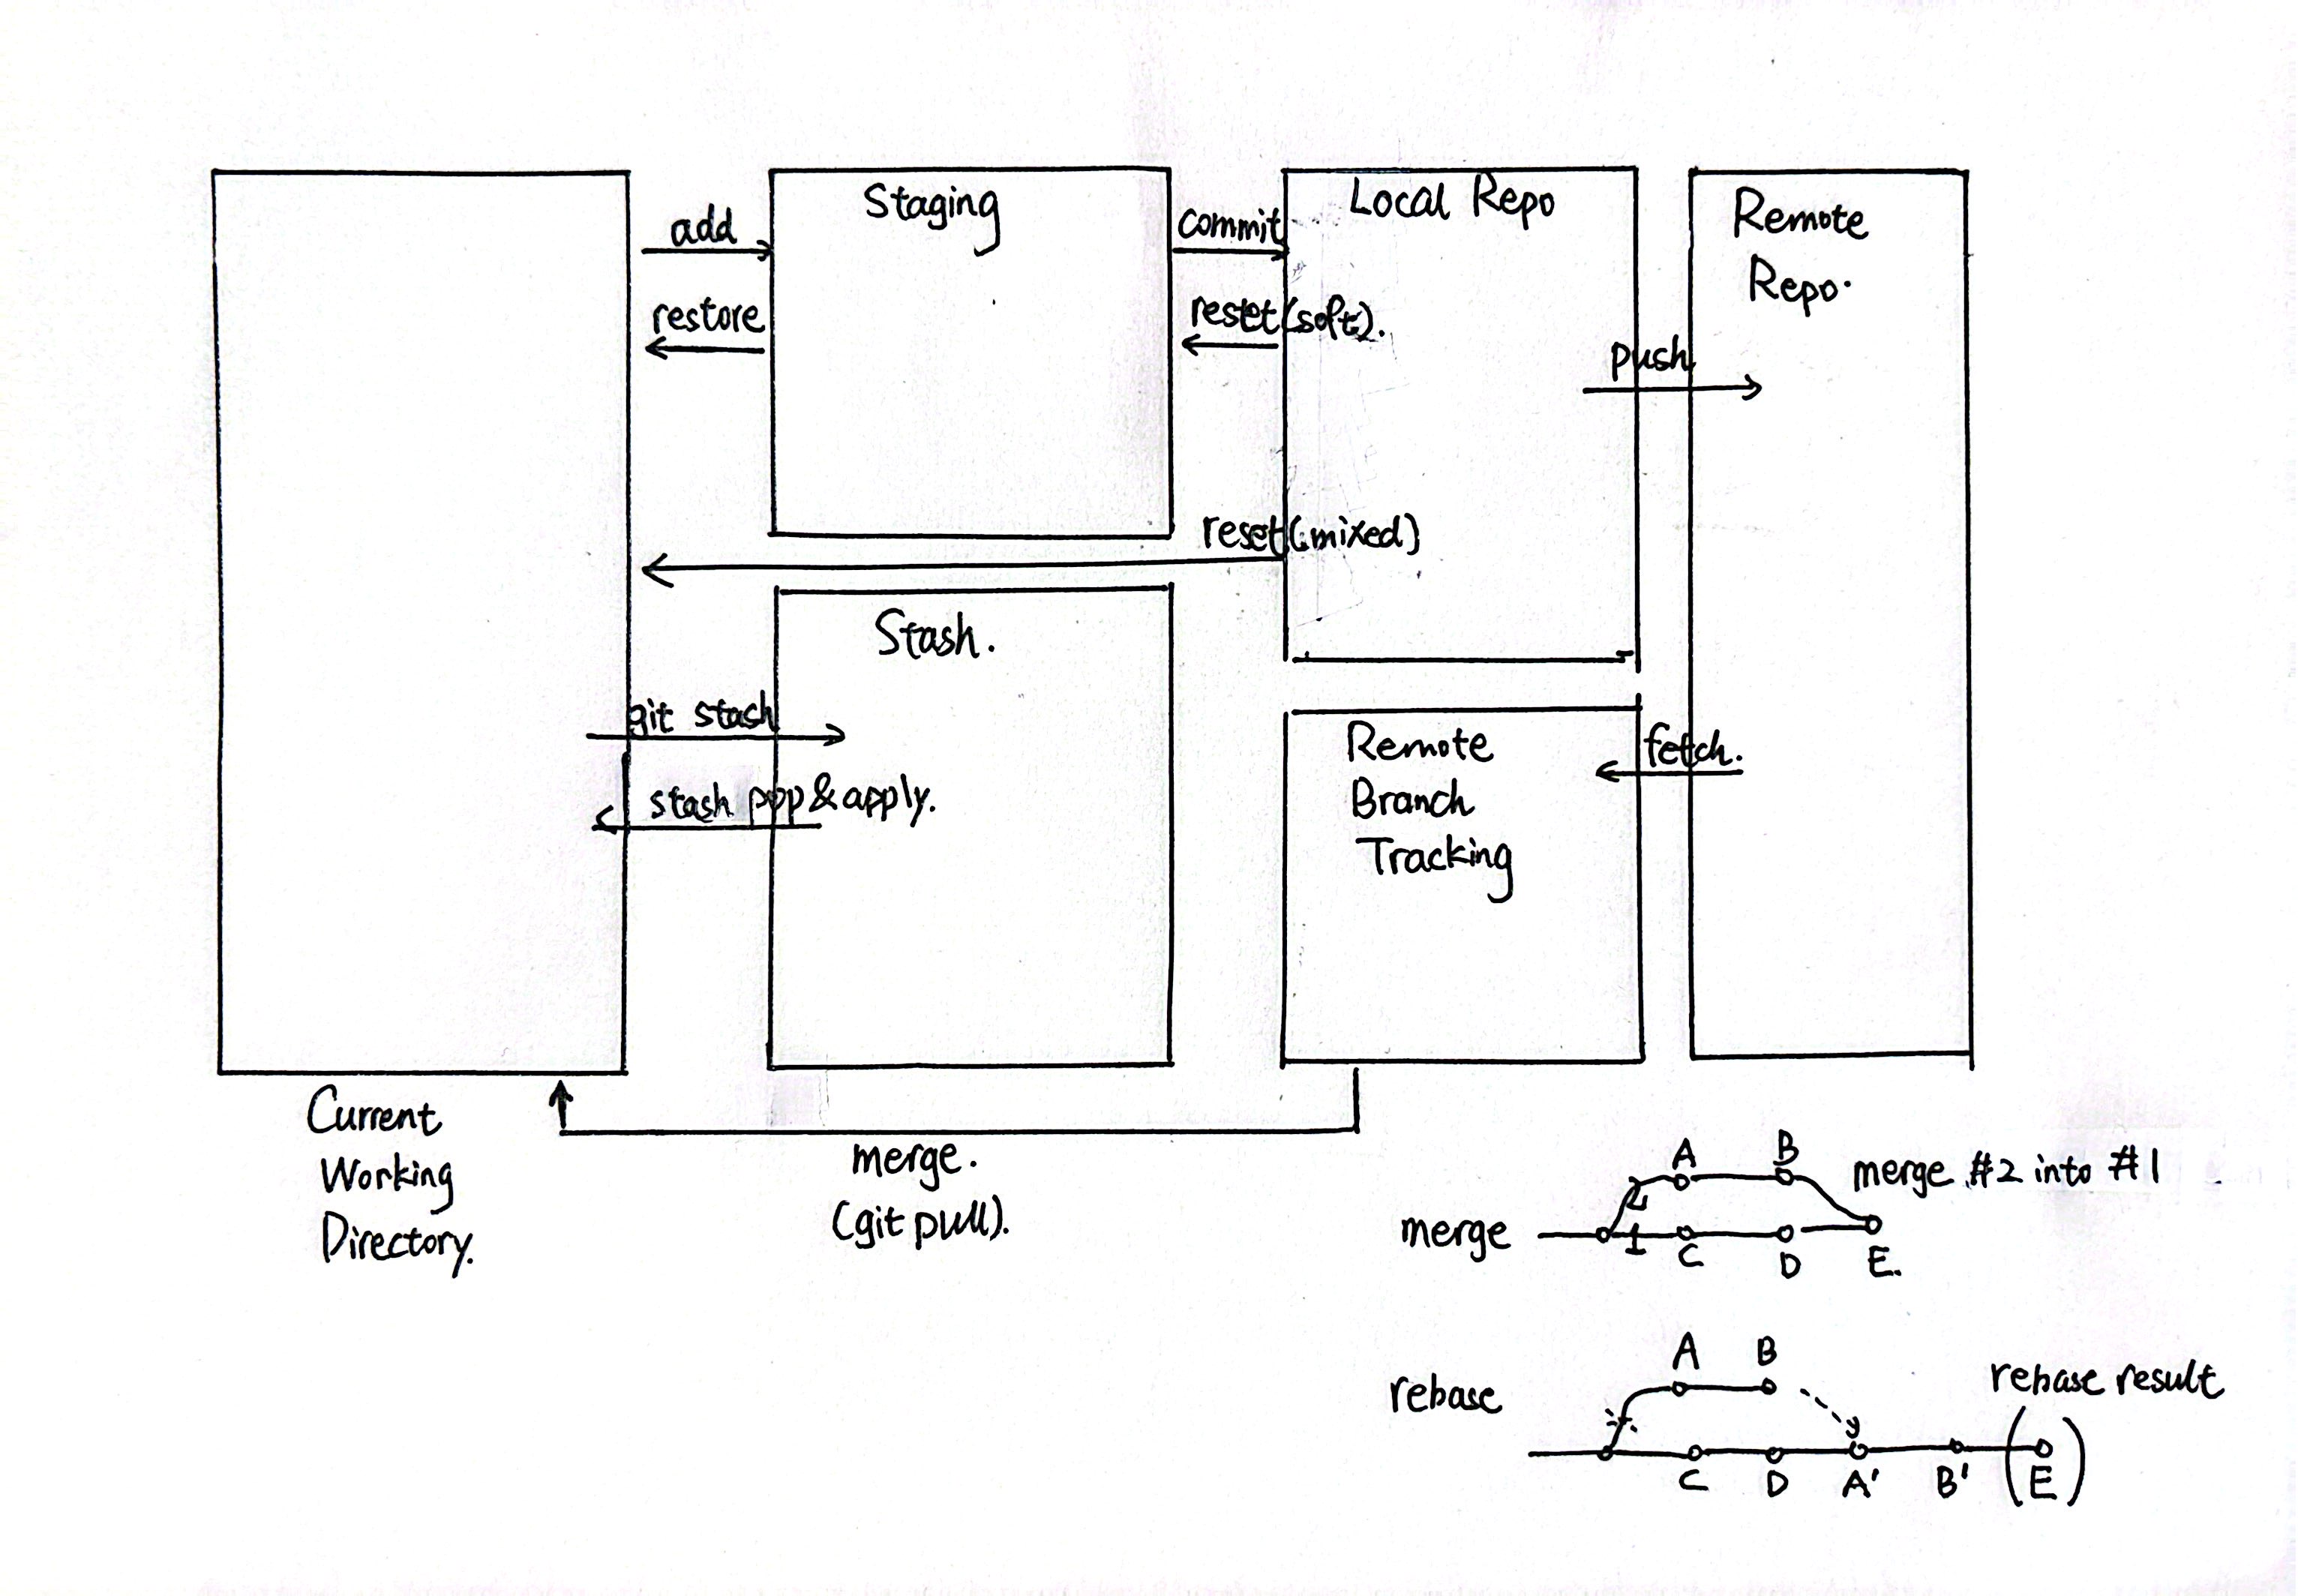 Staging
Local Repo
Remote
Repo.
add
commit
restore
reset(soft).
push
reset(mixed)
Stash.
git stash
stash pop & apply.
Remote
Branch
Tracking
fetch.
Current
Working
Directory.
merge.
(git pull).
merge
A
B
2
1
C
D
E.
merge #2 into #1
rebase
A
B
C
D
A'
B'
(E)
rebase result